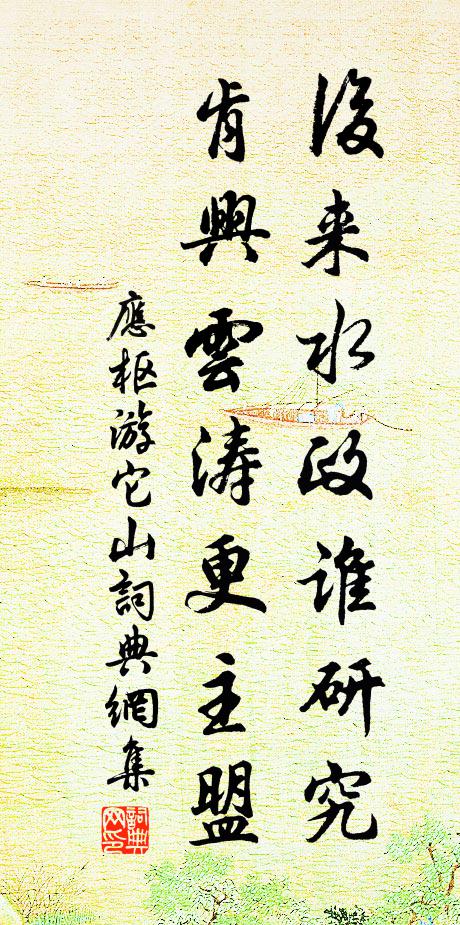 後来水政谁研究
肯興雲涛更主盟
應枢游它山詞典網集
詞典网印